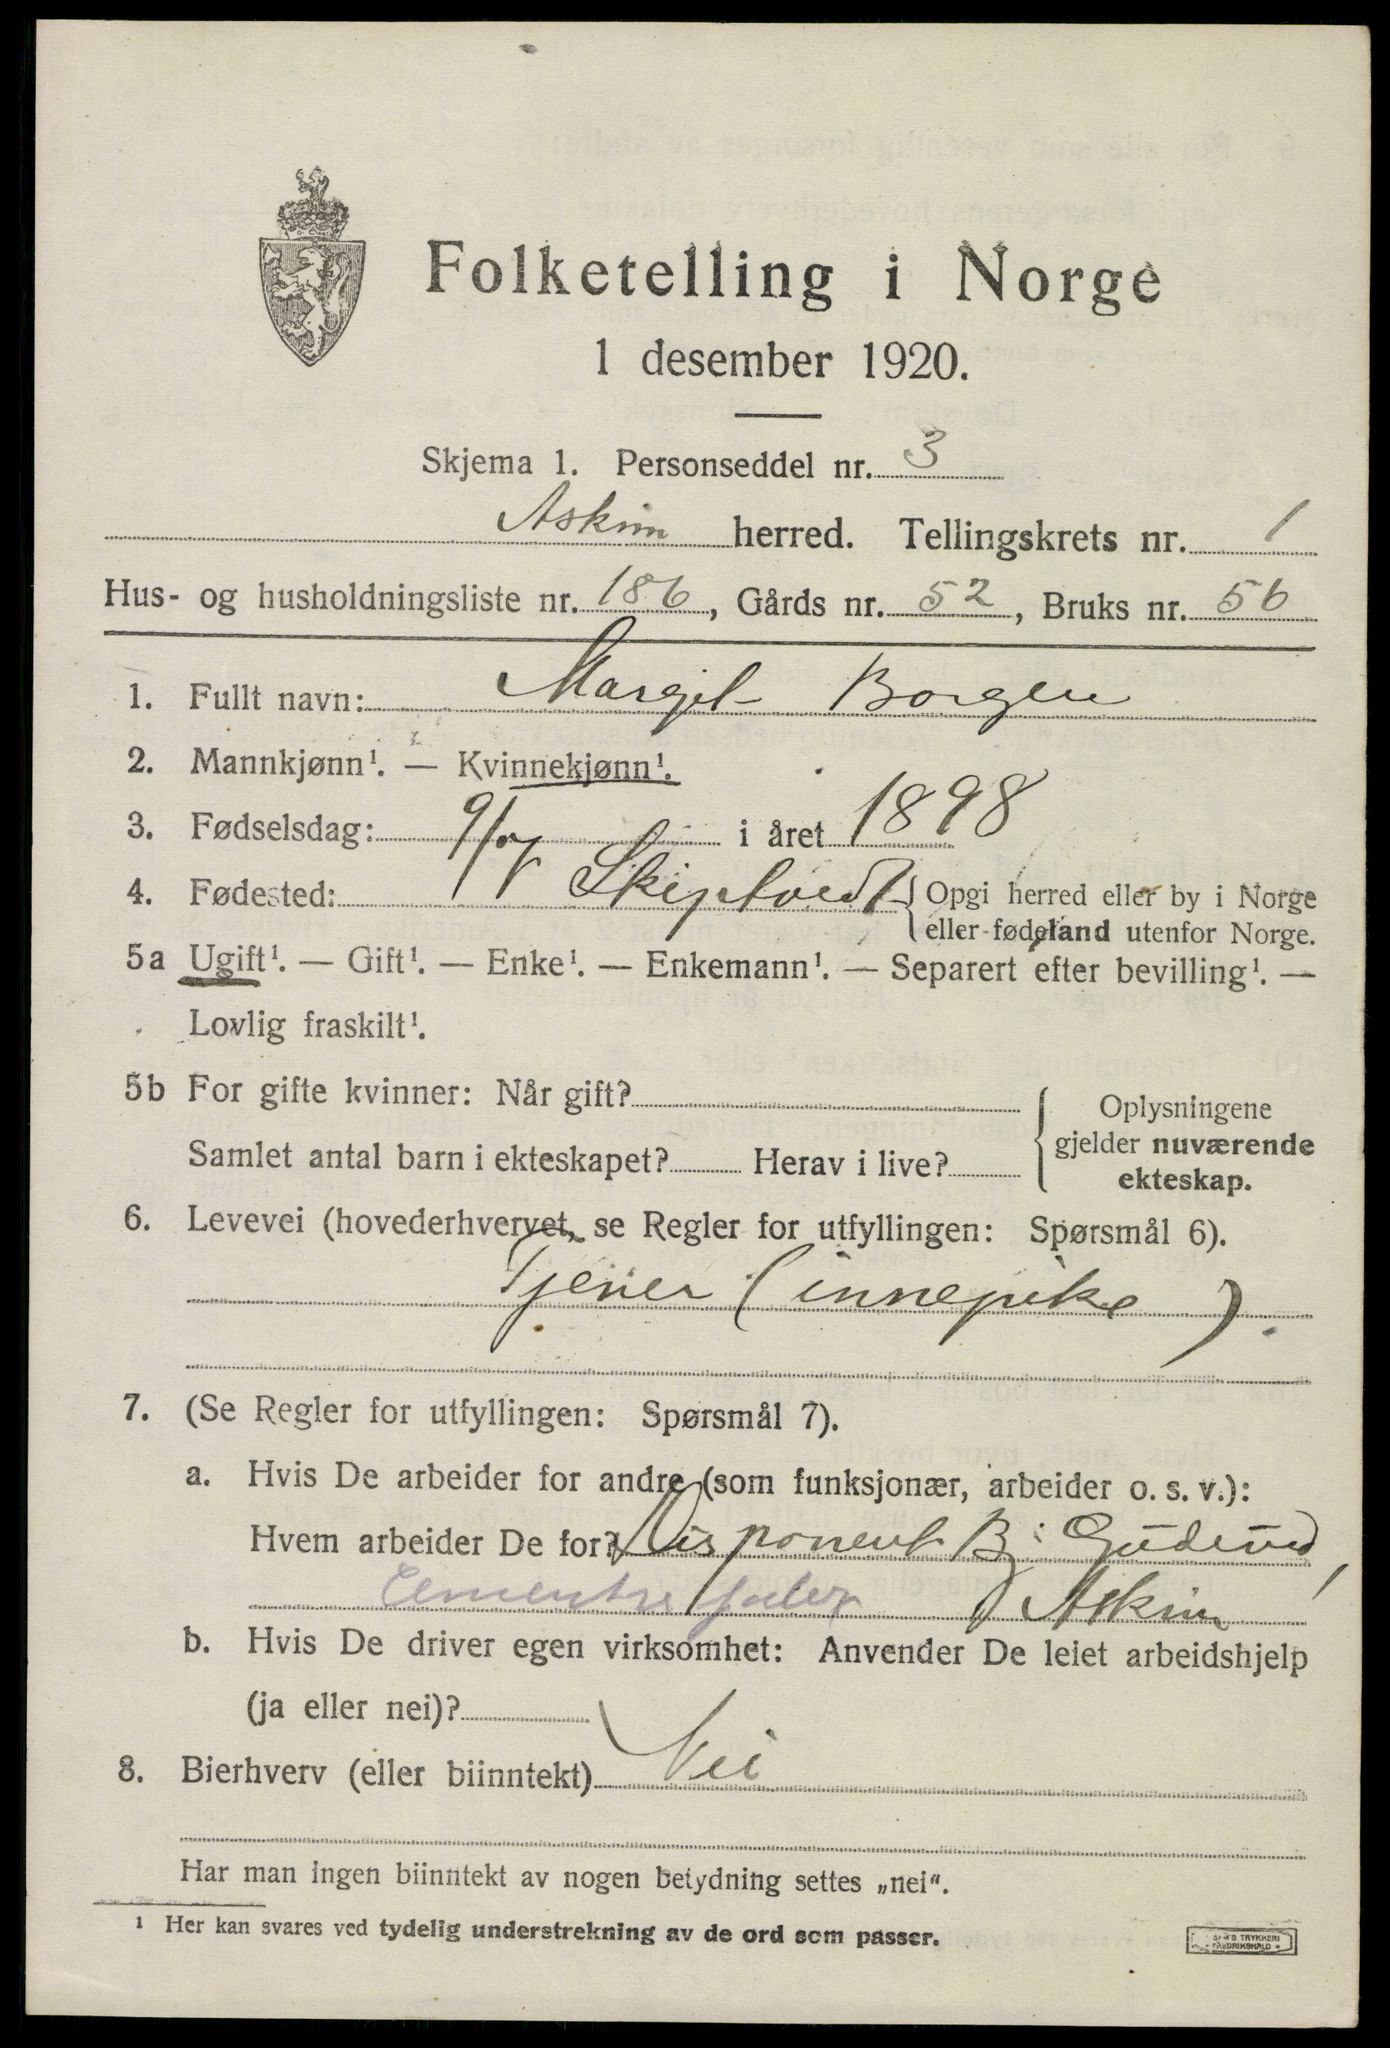 Folketelling i Norge
1 desember 1920.
Skjema 1. Personseddel nr. 3
Askim herred. Tellingskrets nr. 1
Hus- og husholdningsliste nr. 186, Gårds nr. 52, Bruks nr. 56
1. Fullt navn: Margit Borgen
2. Mannkjønn¹. — Kvinnekjønn¹.
3. Fødselsdag: 9/7 i året 1898
4. Fødested: Skiptvedt { Opgi herred eller by i Norge
eller fødeland utenfor Norge.
5a Ugift¹. — Gift¹. — Enke¹. — Enkemann¹. — Separert efter bevilling¹. —
Lovlig fraskilt¹.
5b For gifte kvinner: Når gift?
Samlet antal barn i ekteskapet? Herav i live?
{ Oplysningene
gjelder nuværende
ekteskap.
6. Levevei (hovederhvervet, se Regler for utfyllingen: Spørsmål 6).
Tjener (innepike)
7. (Se Regler for utfyllingen: Spørsmål 7).
a. Hvis De arbeider for andre (som funksjonær, arbeider o. s. v.):
Hvem arbeider De for? Disponent B. Guderud,
Askim
b. Hvis De driver egen virksomhet: Anvender De leiet arbeidshjelp
(ja eller nei)?
8. Bierhverv (eller biinntekt) Nei
Har man ingen biinntekt av nogen betydning settes „nei“.
¹ Her kan svares ved tydelig understrekning av de ord som passer.
TRYKKERI
FREDRIKSHALD